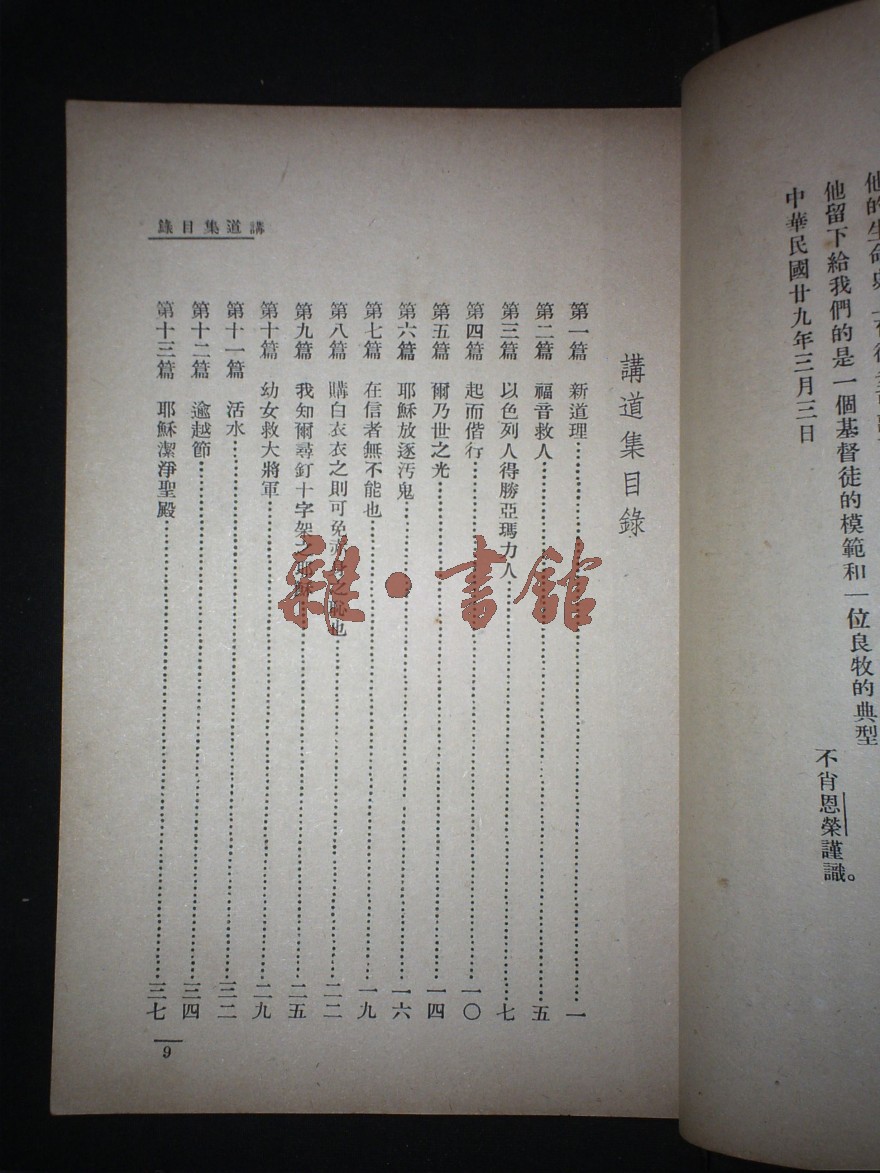 他留下給我們的是一個基督徒的模範和一位良牧的典型
不肖恩榮謹識。
中華民國廿九年三月三日
講道集目錄
講道集目錄
第一篇 新道理 一
第二篇 福音救人 五
第三篇 以色列人得勝亞瑪力人 七
第四篇 起而偕行 一〇
第五篇 爾乃世之光 一四
第六篇 耶穌放逐汚鬼 一六
第七篇 在信者無不能也 一九
第八篇 購白衣衣之則可免 之 也 二二
第九篇 我知爾尋釘十字架之耶穌 二五
第十篇 幼女救大將軍 二九
第十一篇 活水 三二
第十二篇 逾越節 三四
第十三篇 耶穌潔淨聖殿 三七
9
雜·書館